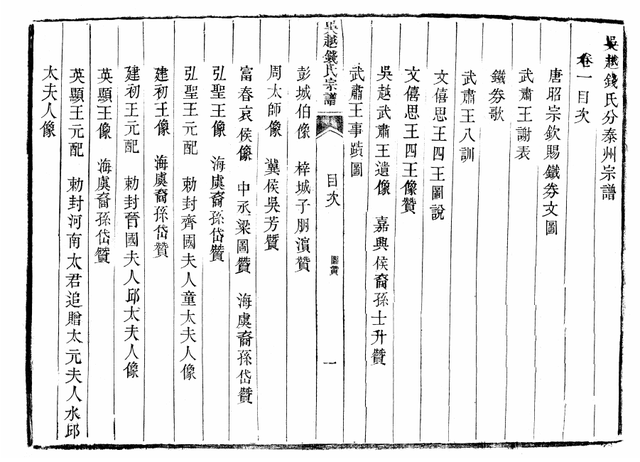 吳越錢氏分泰州宗譜
卷一目次
唐昭宗欽賜鐵券文圖
武肅王謝表
鐵券歌
武肅王八訓
文僖思王四王圖說
文僖思王四王像贊
吳越武肅王遺像 嘉興侯裔孫士升贊
武肅王事蹟圖
吳越錢氏宗譜 目次 圖贊 一
彭城伯像 梓城子朋濵贊
周太師像 冀侯吳芳贊
富春哀侯像 中丞梁圖贊 海虞裔孫岱贊
弘聖王像 海虞裔孫岱贊
弘聖王元配 勅封齊國夫人童太夫人像
建初王像 海虞裔孫岱贊
建初王元配 勅封晉國夫人邱太夫人像
英顯王像 海虞裔孫岱贊
英顯王元配 勅封河南太君追贈太元夫人水邱
太夫人像